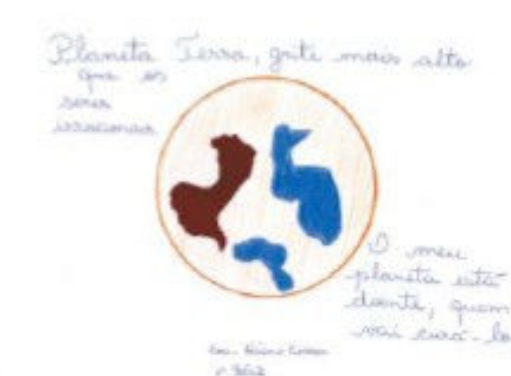 Planeta Terra, grite mais alto
que os
seres
irracionais
O meu
planeta está
doente, quem
vai curá-lo